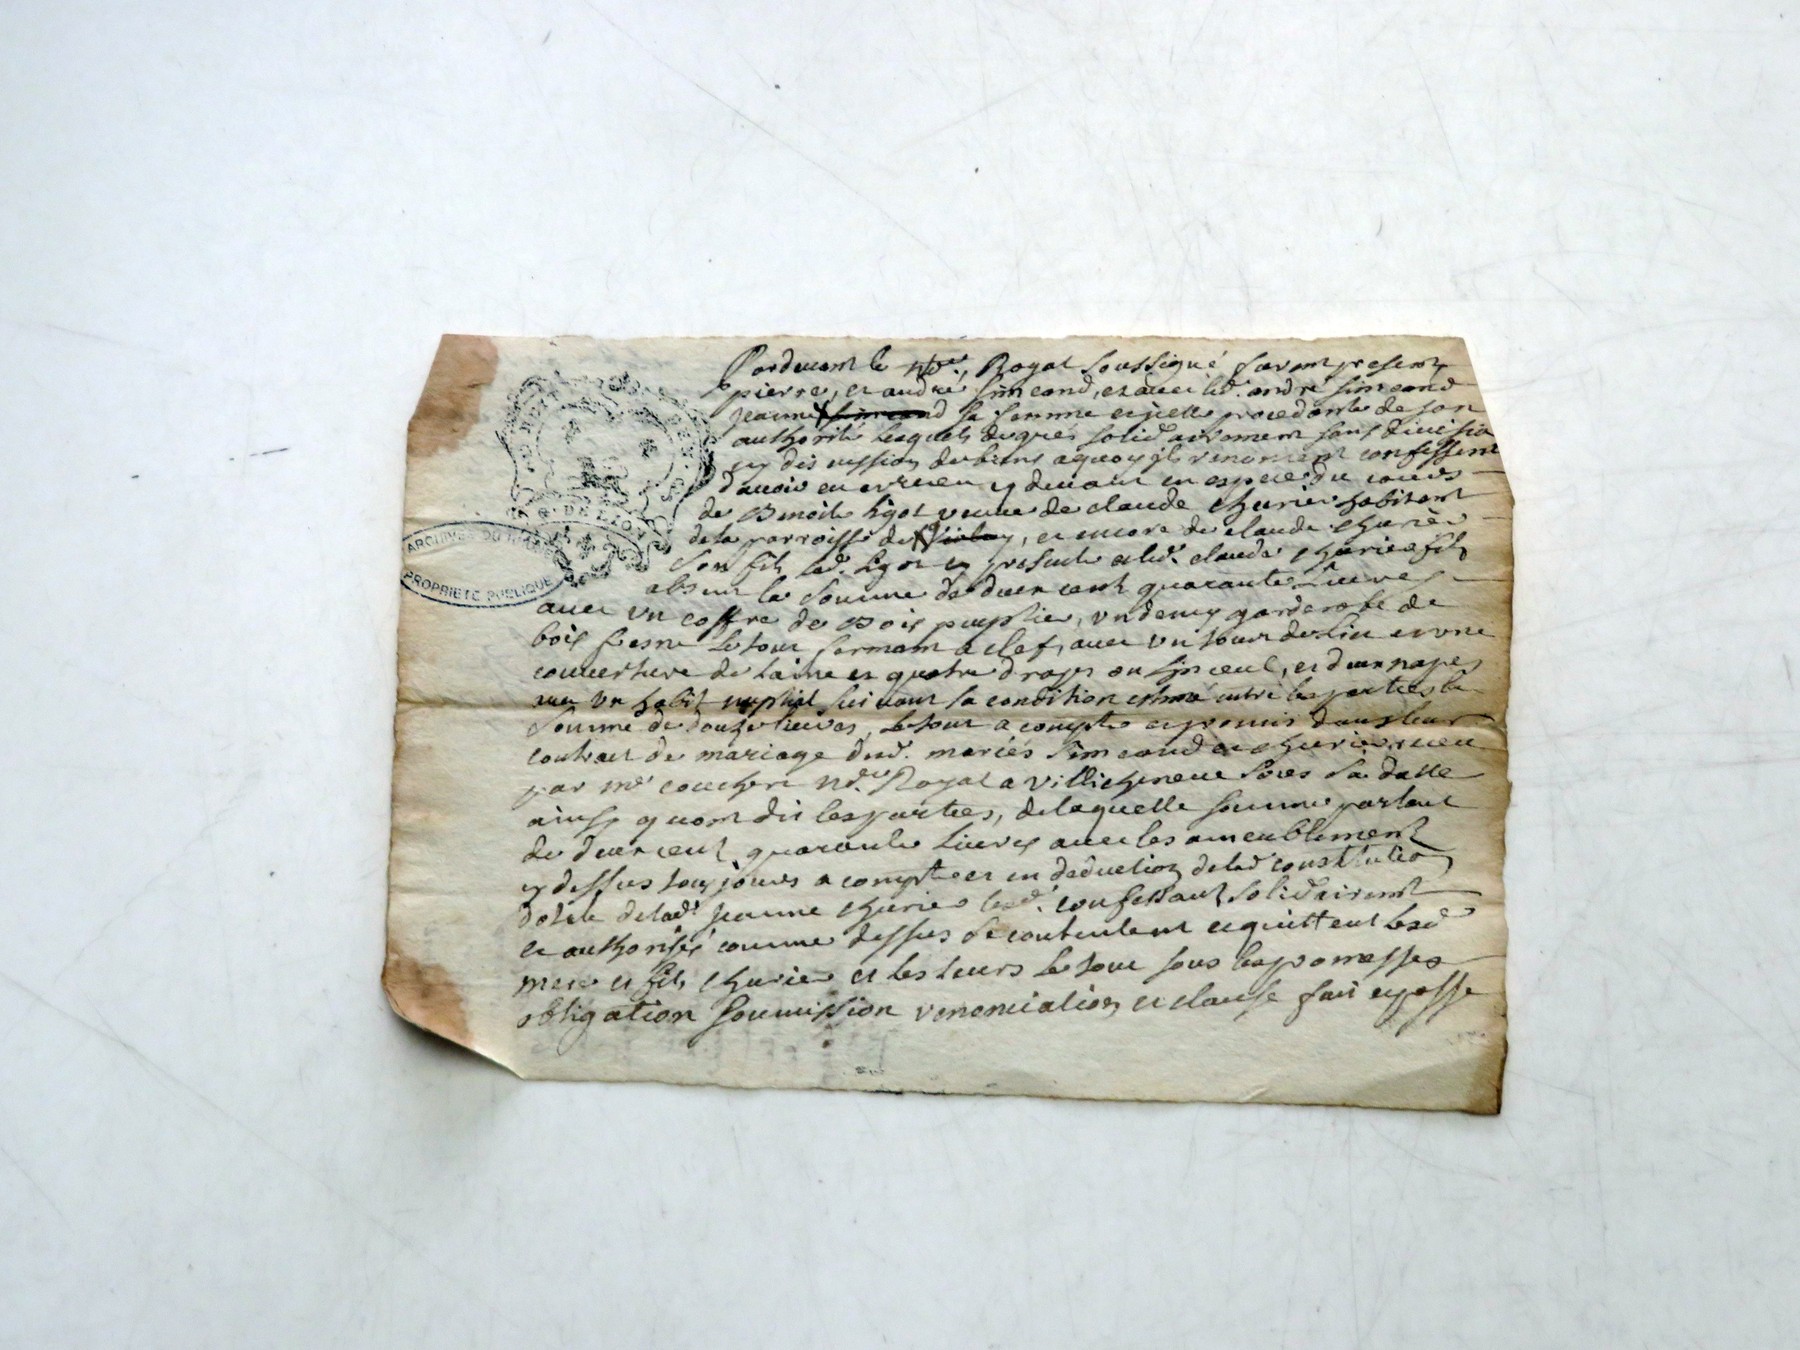 Pardevant le no.re Royal soussigné furent presents
pierre, et andré simeand, et avec led. andré simeand
jeanne sa femme et jcelle procedante de son
authorité lesquels de grés solidairement sans division
ny discussion de biens a quoy jls renoncent confessent
d'avoir eu et receu cy devant en espece du cours
de Benoite ligot veuve de claude churie habitant
de la parroisse de, et encore de claude churie
son fils lad. ligot cy presente et led. claude churie fils
absent la somme de deux cent quarante Livres
avec un coffre de Bois puplie, un demy garderobe de
bois fresne le tout fermant a clef, avec un tour de lin et une
couverture de laine et quatre draps ou linceul, et deux napes
un habit nuptial suivant sa condition estimé entre les parties la
somme de douze livres, le tout a compte et promis dans leur
contract de mariage dud. mariés simeand et churie, receu
par me couchere no.re Royal a villecheneve sous sa datte
ainsy qu'ont dit les parties, de laquelle somme partant
de deux cent quarante Livres avec les ameublement
cy dessus tousjours a compte et en deduction de lad constitution
dotale de lad. jeanne churie lesd. confessants solidairement
et authorisés comme dessus se contentent et quittent lesd
mere et fils churie et les leurs le tout sous les promesses
obligation soumission renonciation et clause fait et passé
G. DE LYON
ARCHIVES DU RHONE
PROPRIETE PUBLIQUE